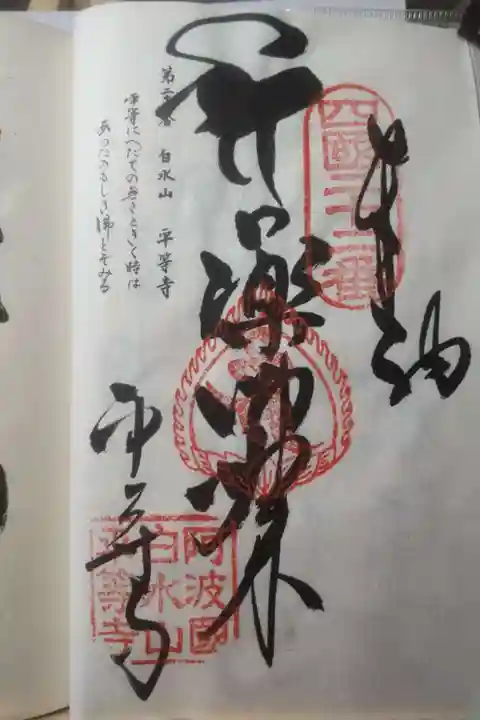 奉納
四國二十二番
薬師如来
第二十二番 白水山 平等寺
平等にへだての無きときく時は
あらたのもしき佛とぞみる
平等寺
阿波國
白水山
平等寺